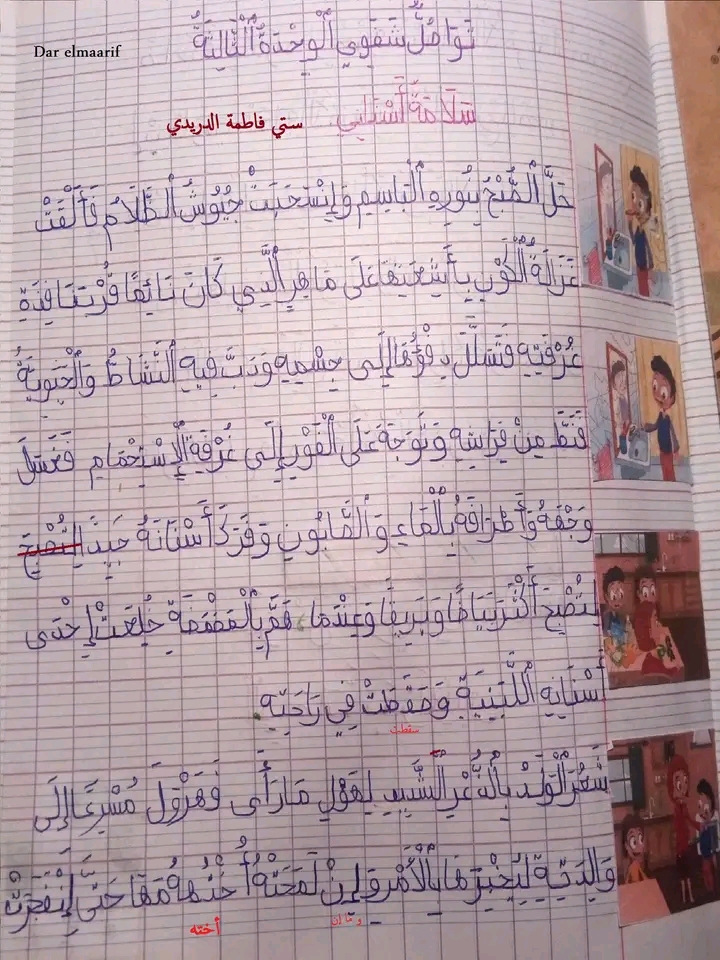 Dar elmaarif
تَوَاصُلٌ شَفَوِي اَلْوِحْدَةُ اُلْثَّالِثَةُ
سَلَامَةُ أَسْنَانِي ستي فاطمة الدريدي
حَلَّ اَلْصُّبْحُ بِنُورِهِ اِلْبَاسِمِ وَاِنْسَحَبَتْ جُيُوشُ اُلْظَّلَامِ فَأَلْقَتْ
غَزَالَةُ اُلْكَوْنِ بِأَشِعَّتِهَا عَلَى مَاهِرٍ اِلَّذِي كَانَ نَائِمًا قُرْبَ نَافِذَةِ
غُرْفَتِهِ فَتَسَلَّلَ دِفْؤُهَا إِلَى جِسْمِهِ وَدَبَّ فِيهِ اُلْنَّشَاطُ وَاُلْحَيَوِيَّةُ
فَنَطَّ مِنْ فِرَاشِهِ وَتَوَجَّهَ عَلَى اَلْفَوْرِ إِلَى غُرْفَةِ اِلْإِسْتِحْمَامِ فَغَسَلَ
وَجْهَهُ وَأَطْرَافَهُ بِالْمَاءِ وَاَلْصَّابُونِ وَفَرَكَ أَسْنَانَهُ جَيِّدًا
لِتُصْبِحَ أَكْثَرَ بَيَاضًا وَبَرِيقًا وَعِنْدَمَا هَمَّ بِاَلْمَضْمَضَةِ خُلِعَتْ إِحْدَى
أَسْنَانِهِ اِلْلَّبَنِيَّةِ وَسَقَطَتْ فِي رَاحَتِهِ
سقطت
شَعُرَ اَلْوَلَدُ بِاُلْذُّعْرِ اِلْشَّدِيدِ لِهَوْلِ مَا رَأَى فَهَرْوَلَ مُسْرِعًا إِلَى
وَالِدَتِهِ لِيُخْبِرَهَا بِاُلْأَمْرِ وَإِنْ لَمَحَتْهُ أُخْتُهُ مَهَا حَتَّى اِنْفَجَرَتْ
وما إن
أخته